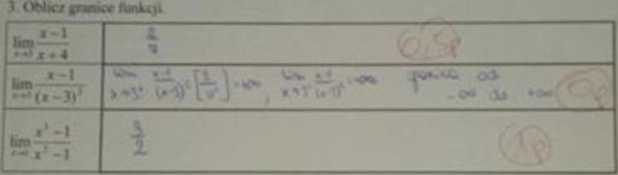 3. Oblicz granice funkcji.
lim x→3 (x-1)/(x+4) 2/7 0,5p
lim x→3 (x-1)/(x-3)² lim x→3⁺ (x-1)/(x-3)² = +∞, lim x→3⁻ (x-1)/(x-3)² granica od -∞ do +∞ 0p
lim (x³-1)/(x²-1) 3/2 1p